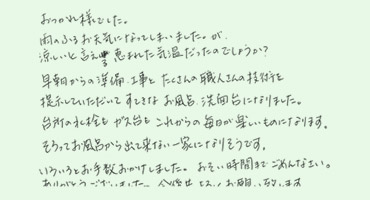 おつかれ様でした。
雨のふるお天気になってしまいました。が、
涼しいと言え 恵まれた気温だったのでしょうか?
早朝からの準備、工事と たくさんの職人さんの技術を
提示していただいて すてきな お風呂、洗面台になりました。
台所の水栓も ガス台も これからの毎日が楽しいものになります。
そろってお風呂から出て来ない一家になりそうです。
いろいろとお手数おかけしました。おそい時間までごめんなさい。
ありがとうございました。今後共 よろしくお願い致します